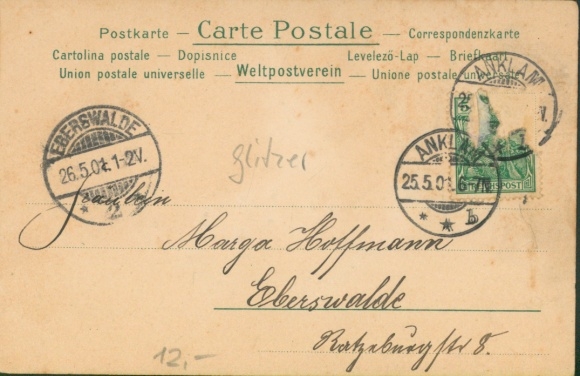 Postkarte — Carte Postale — Correspondenzkarte
Cartolina postale — Dopisnice Levelező-Lap — Briefkaart
Union postale universelle — Weltpostverein — Unione postale universale
ANKLAM
EBERSWALDE
26.5.01.1-2V.
* 2
ANKLAM
25.5.01.6-7N.
* * b
REICHSPOST
glitzer
Fräulein
Marga Hoffmann
Eberswalde
Ratzeburgstr 8.
12,-